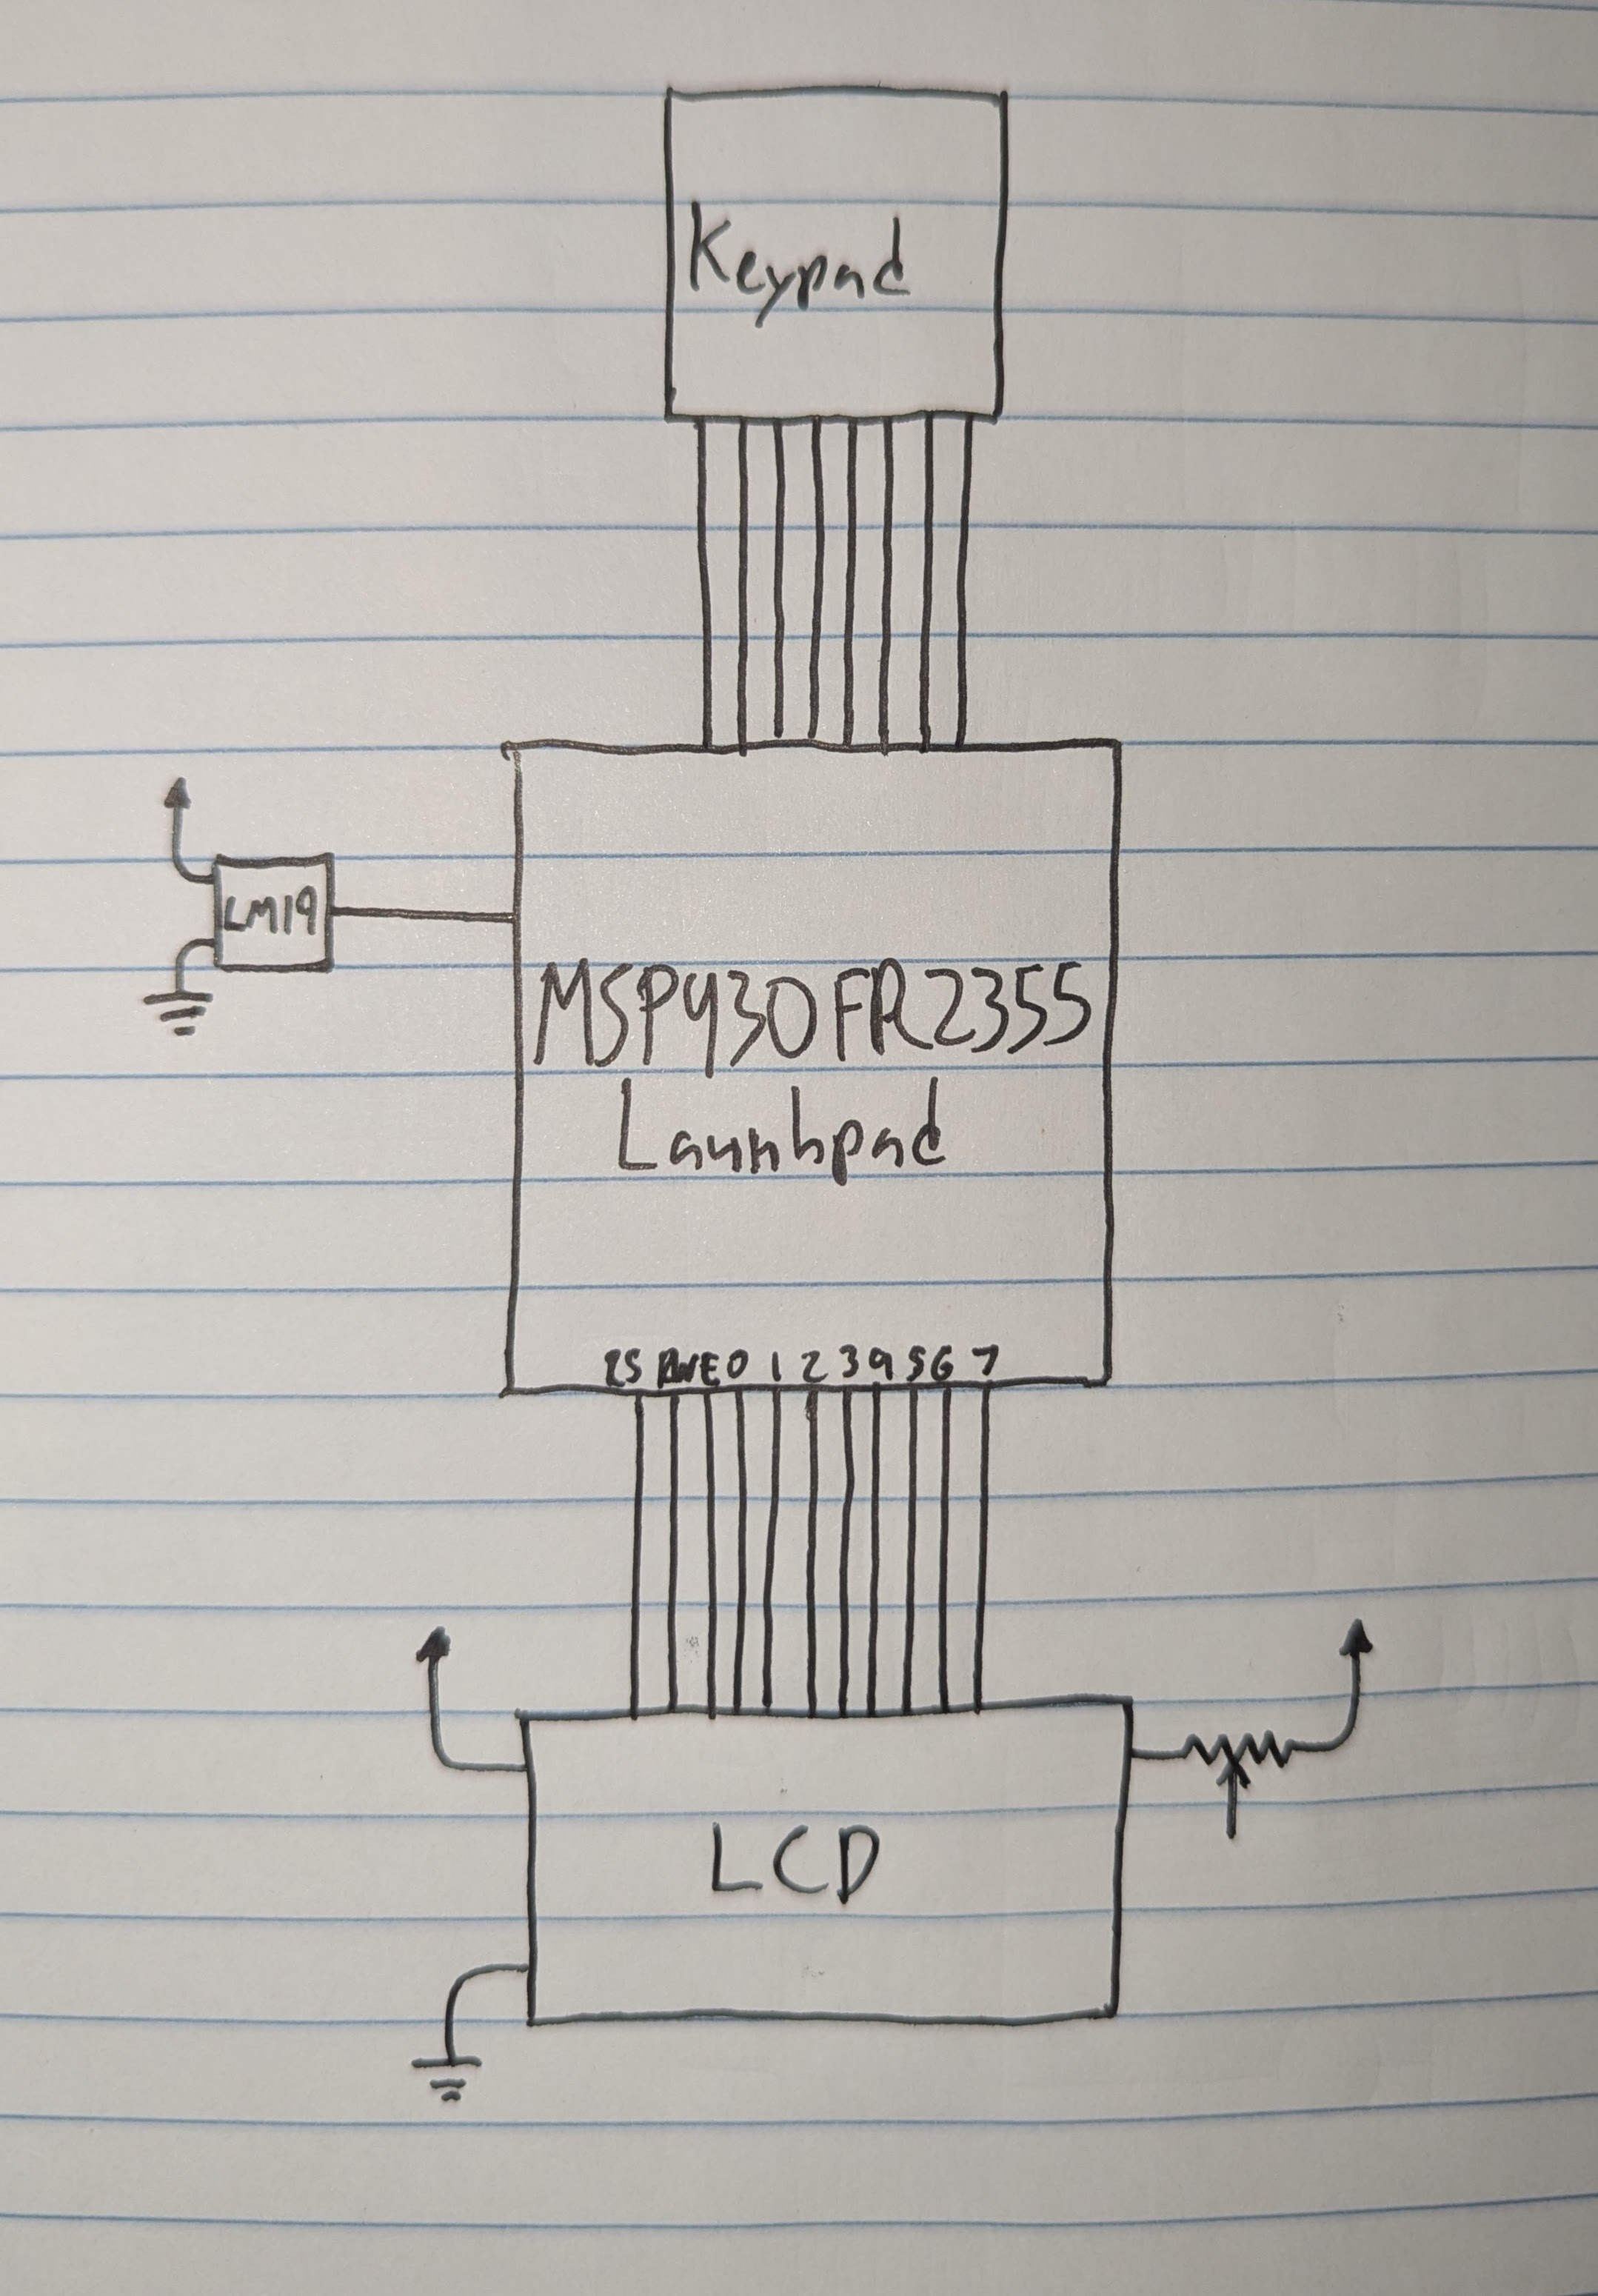 Keypad
LM19
MSP430FR2355
Launhpad
RS RWE0 1 2 3 4 5 6 7
LCD